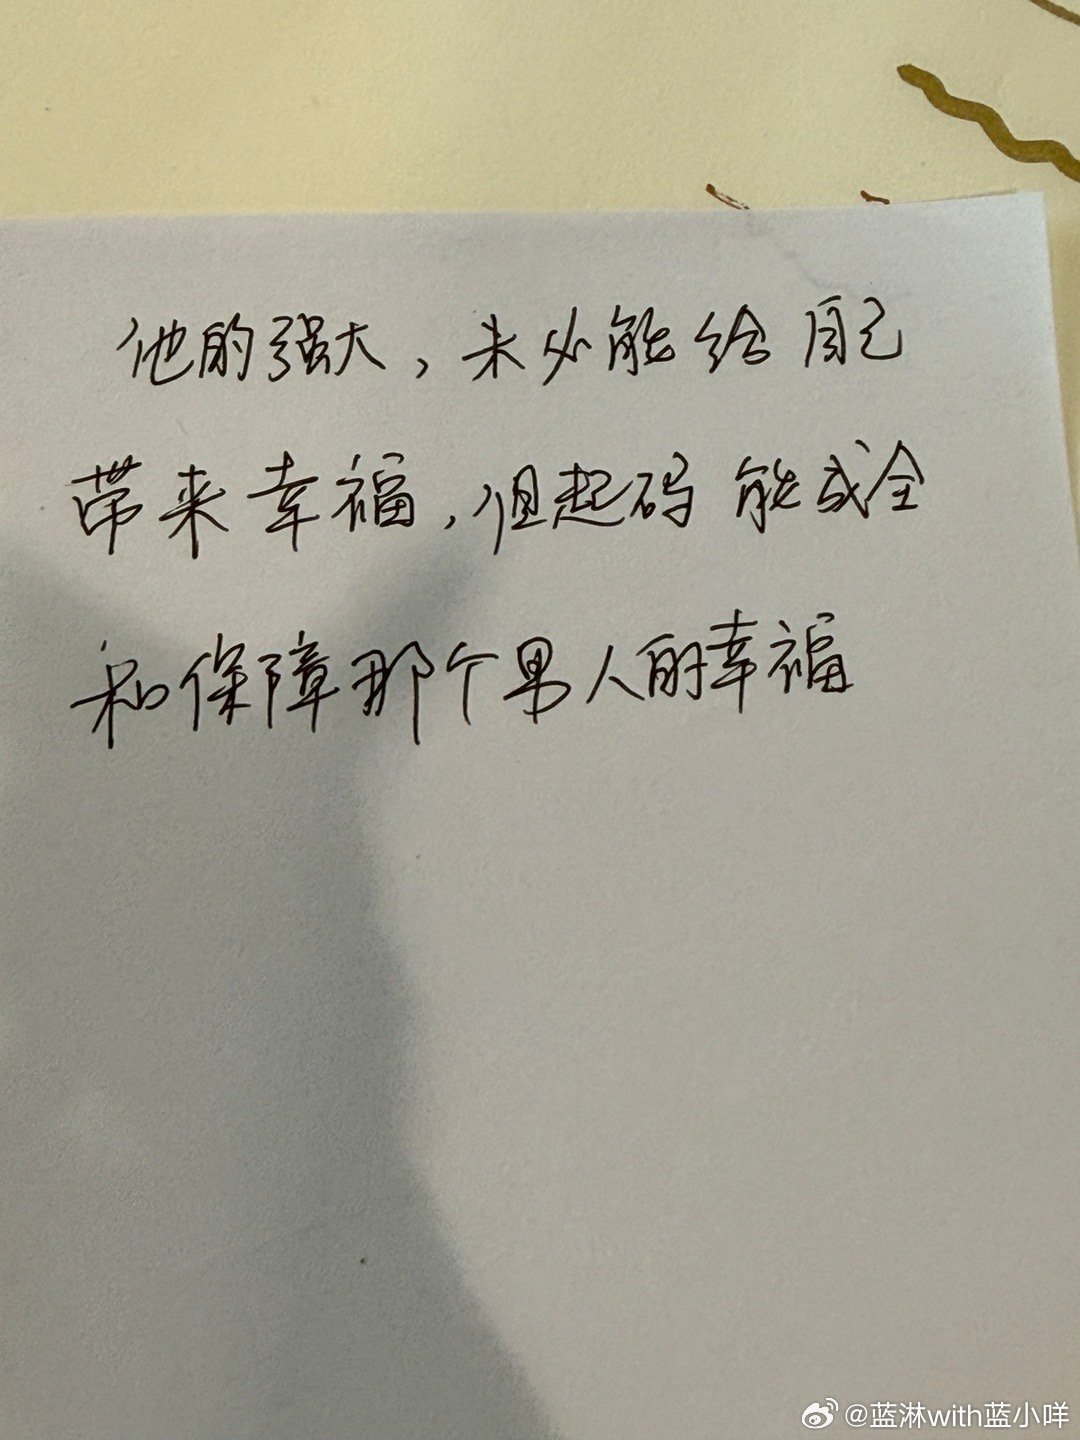 他的强大，未必能给自己
带来幸福，但起码能成全
和保障那个男人的幸福
@蓝淋with蓝小咩